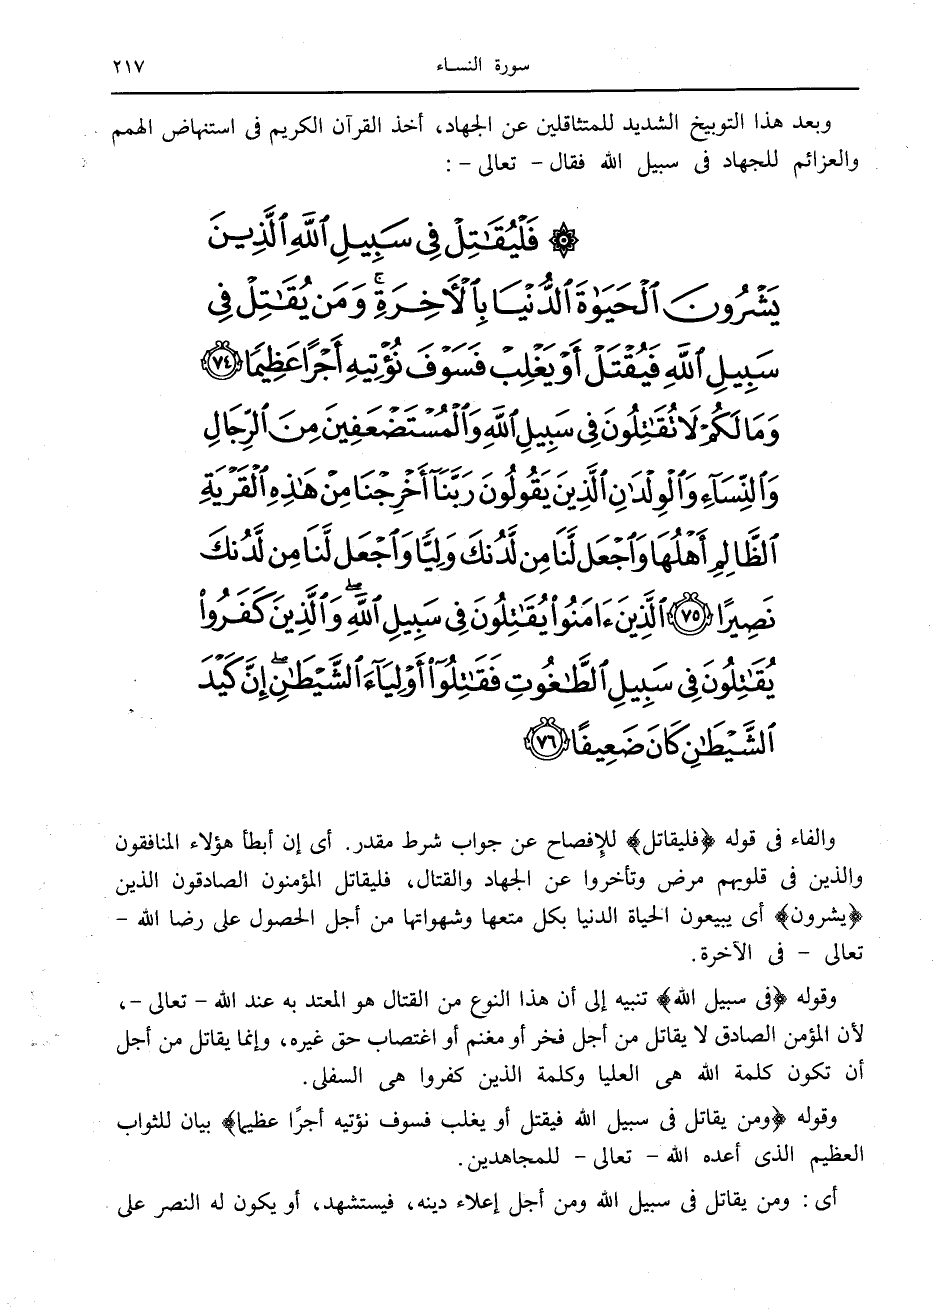 سورة النساء ٢١٧
وبعد هذا التوبيخ الشديد للمتثاقلين عن الجهاد، أخذ القرآن الكريم فى استنهاض الهمم
والعزائم للجهاد فى سبيل الله فقال - تعالى - :
۞ فَلْيُقَٰتِلْ فِى سَبِيلِ ٱللَّهِ ٱلَّذِينَ
يَشْرُونَ ٱلْحَيَوٰةَ ٱلدُّنْيَا بِٱلْءَاخِرَةِ ۚ وَمَن يُقَٰتِلْ فِى
سَبِيلِ ٱللَّهِ فَيُقْتَلْ أَوْ يَغْلِبْ فَسَوْفَ نُؤْتِيهِ أَجْرًا عَظِيمًا ٧٤
وَمَا لَكُمْ لَا تُقَٰتِلُونَ فِى سَبِيلِ ٱللَّهِ وَٱلْمُسْتَضْعَفِينَ مِنَ ٱلرِّجَالِ
وَٱلنِّسَآءِ وَٱلْوِلْدَٰنِ ٱلَّذِينَ يَقُولُونَ رَبَّنَآ أَخْرِجْنَا مِنْ هَٰذِهِ ٱلْقَرْيَةِ
ٱلظَّالِمِ أَهْلُهَا وَٱجْعَل لَّنَا مِن لَّدُنكَ وَلِيًّا وَٱجْعَل لَّنَا مِن لَّدُنكَ
نَصِيرًا ٧٥ ٱلَّذِينَ ءَامَنُوا۟ يُقَٰتِلُونَ فِى سَبِيلِ ٱللَّهِ ۖ وَٱلَّذِينَ كَفَرُوا۟
يُقَٰتِلُونَ فِى سَبِيلِ ٱلطَّٰغُوتِ فَقَٰتِلُوٓا۟ أَوْلِيَآءَ ٱلشَّيْطَٰنِ ۖ إِنَّ كَيْدَ
ٱلشَّيْطَٰنِ كَانَ ضَعِيفًا ٧٦
والفاء فى قوله ﴿فليقاتل﴾ للإفصاح عن جواب شرط مقدر. أى إن أبطأ هؤلاء المنافقون
والذين فى قلوبهم مرض وتأخروا عن الجهاد والقتال، فليقاتل المؤمنون الصادقون الذين
﴿يشرون﴾ أى يبيعون الحياة الدنيا بكل متعها وشهواتها من أجل الحصول على رضا الله -
تعالى - فى الآخرة.
وقوله ﴿فى سبيل الله﴾ تنبيه إلى أن هذا النوع من القتال هو المعتد به عند الله - تعالى -،
لأن المؤمن الصادق لا يقاتل من أجل فخر أو مغنم أو اغتصاب حق غيره، وإنما يقاتل من أجل
أن تكون كلمة الله هى العليا وكلمة الذين كفروا هى السفلى.
وقوله ﴿ومن يقاتل فى سبيل الله فيقتل أو يغلب فسوف نؤتيه أجرًا عظيما﴾ بيان للثواب
العظيم الذى أعده الله - تعالى - للمجاهدين.
أى : ومن يقاتل فى سبيل الله ومن أجل إعلاء دينه، فيستشهد، أو يكون له النصر على